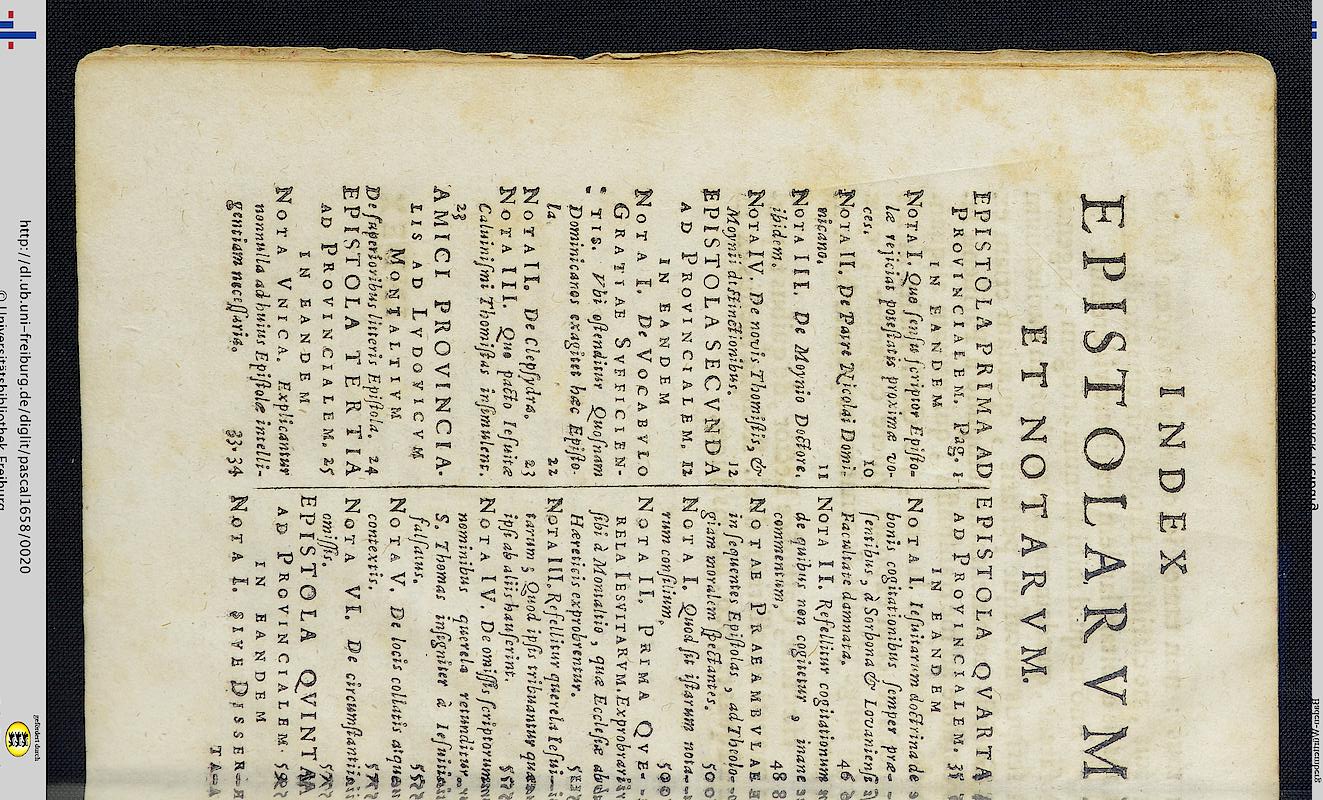 INDEX
EPISTOLARVM
ET NOTARVM.
EPISTOLA PRIMA AD
PROVINCIALEM. Pag. 1
IN EANDEM
NOTA I. Quo sensu scriptor Episto-
læ rejiciat potestatis proximæ vo-
ces. 10
NOTA II. De Patre Nicolai Domi-
nicano. 11
NOTA III. De Moynio Doctore,
ibidem.
NOTA IV. De novis Thomistis, &
Moynii distinctionibus. 12
EPISTOLA SECVNDA
AD PROVINCIALEM. 12
IN EANDEM
NOTA I. DE VOCABVLO
GRATIAE SVFFICIEN-
TIS. Vbi ostenditur Quosnam
Dominicanos exagitet hæc Episto-
la. 22
NOTA II. De Clepsydra. 23
NOTA III. Quo pacto Iesuitæ
Caluinismi Thomistas insimulent.
23
AMICI PROVINCIA-
LIS AD LVDOVICVM
MONTALTIVM
De superioribus litteris Epistola. 24
EPISTOLA TERTIA
AD PROVINCIALEM. 25
IN EANDEM
NOTA VNICA. Explicantur
nonnulla ad huius Epistolæ intelli-
gentiam necessaria. 33. 34
EPISTOLA QVARTA
AD PROVINCIALEM.
IN EANDEM
NOTA I. Iesuitarum doctrina de
bonis cogitationibus semper præ-
sentibus, à Sorbona & Lovaniensi
Facultate damnata. 46
NOTA II. Refellitur cogitationum
de quibus non cogitetur, inane
commentum. 48
NOTAE PRAEAMBVLAE
in sequentes Epistolas, ad Theolo-
giam moralem spectantes. 50
NOTA I. Quod sit istarum nota-
rum consilium. 50
NOTA II. PRIMA QVE-
RELA IESVITARVM. Exprobrari
sibi à Montaltio, quæ Ecclesiæ ab
Hæreticis exprobrentur.
NOTA III. Refellitur querela Iesui-
tarum; Quod ipsis tribuantur quæ
ipsi ab aliis hauserint.
NOTA IV. De omissis scriptorum
nominibus querela retunditur.
S. Thomas insigniter à Iesuitis
falsatus.
NOTA V. De locis collatis atque
contextis.
NOTA VI. De circumstantiis
omissis.
EPISTOLA QVINTA
AD PROVINCIALEM.
IN EANDEM
NOTA I. SIVE DISSER-
TA-
http://dl.ub.uni-freiburg.de/diglit/pascal1658/0020
© Universitätsbibliothek Freiburg
gefördert durch